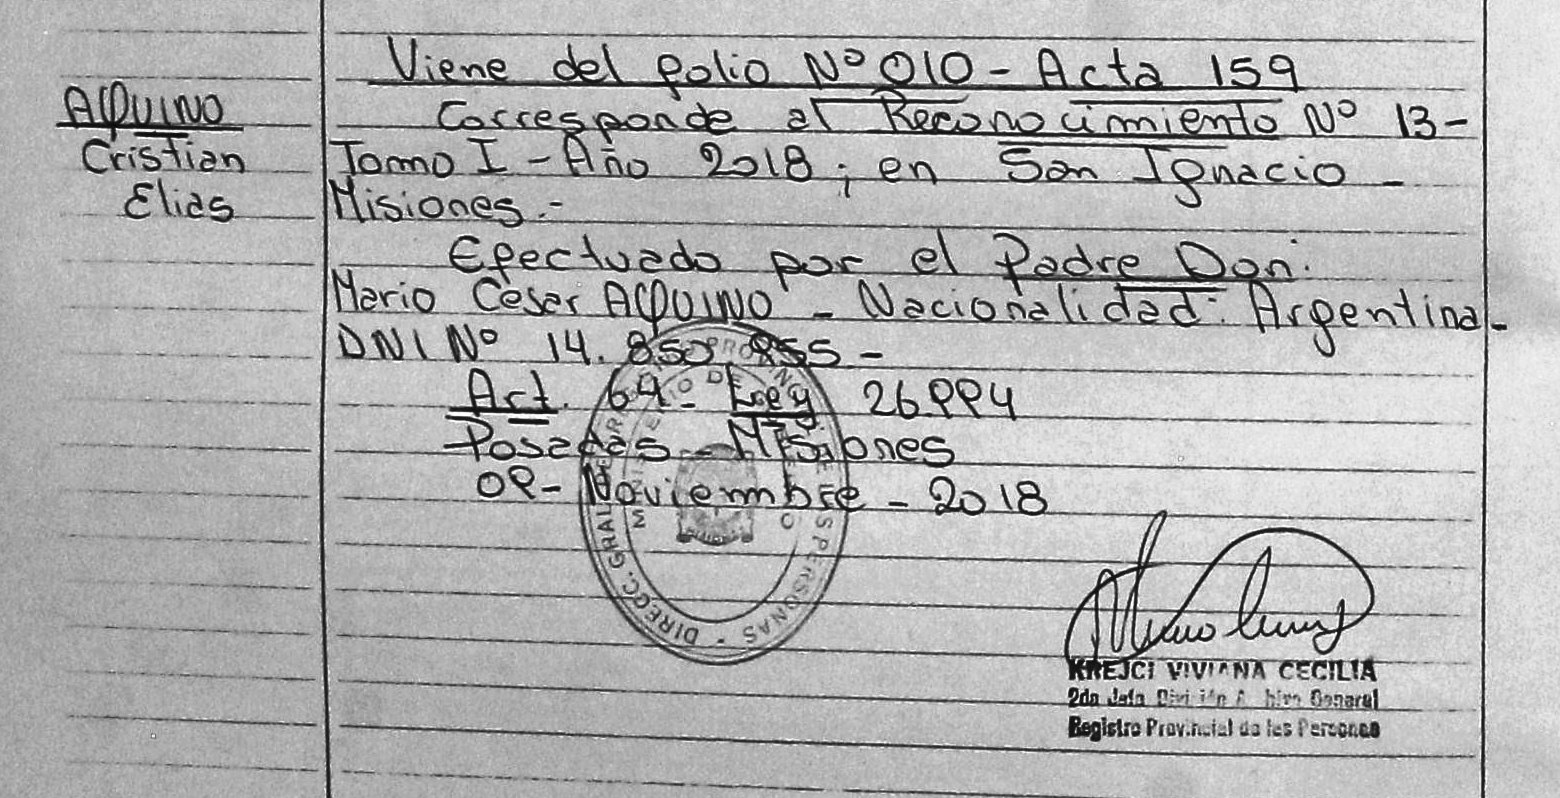 Viene del folio Nº 010 - Acta 159
AQUINO
Cristian
Elias
Corresponde al Reconocimiento Nº 13 -
Tomo I - Año 2018 ; en San Ignacio -
Misiones.-
Efectuado por el Padre Don:
Mario Cesar AQUINO - Nacionalidad: Argentina -
DNI Nº 14.850.855 -
Art. 64 - Ley 26994
Posadas - Misiones
09 - Noviembre - 2018
DIRECC. GRAL. PERSONAS
KREJCI VIVIANA CECILIA
2da Jefa División General
Registro Provincial de las Personas